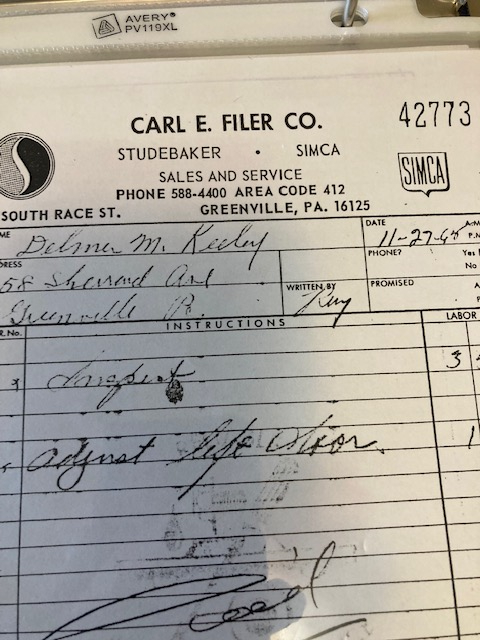 AVERY
PV119XL
42773
CARL E. FILER CO.
STUDEBAKER • SIMCA
SIMCA
SALES AND SERVICE
PHONE 588-4400 AREA CODE 412
SOUTH RACE ST. GREENVILLE, PA. 16125
ME Delmer M. Keeley
DATE 11-27-65
A.M.
P.M.
DRESS 58 Sherrard Ave
PHONE? Yes
No
Greenville Pa.
WRITTEN BY
PROMISED A
P
R. No. INSTRUCTIONS LABOR
Inspect 3
adjust left door 1